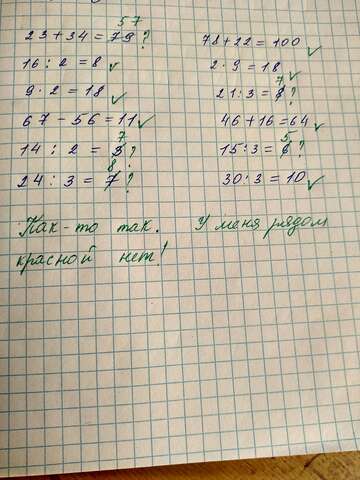 57
23+34 = 79 ?
16 : 2 = 8 ✓
9 · 2 = 18 ✓
67 - 56 = 11 ✓
7
14 : 2 = ?
8
24 : 3 = 7 ?
78+22 = 100 ✓
2 · 9 = 18 ✓
7
21:3 = ?
46+16=64 ✓
5
15:3= 6 ?
30:3 = 10 ✓
Как-то так. У меня рядом
красной нет!